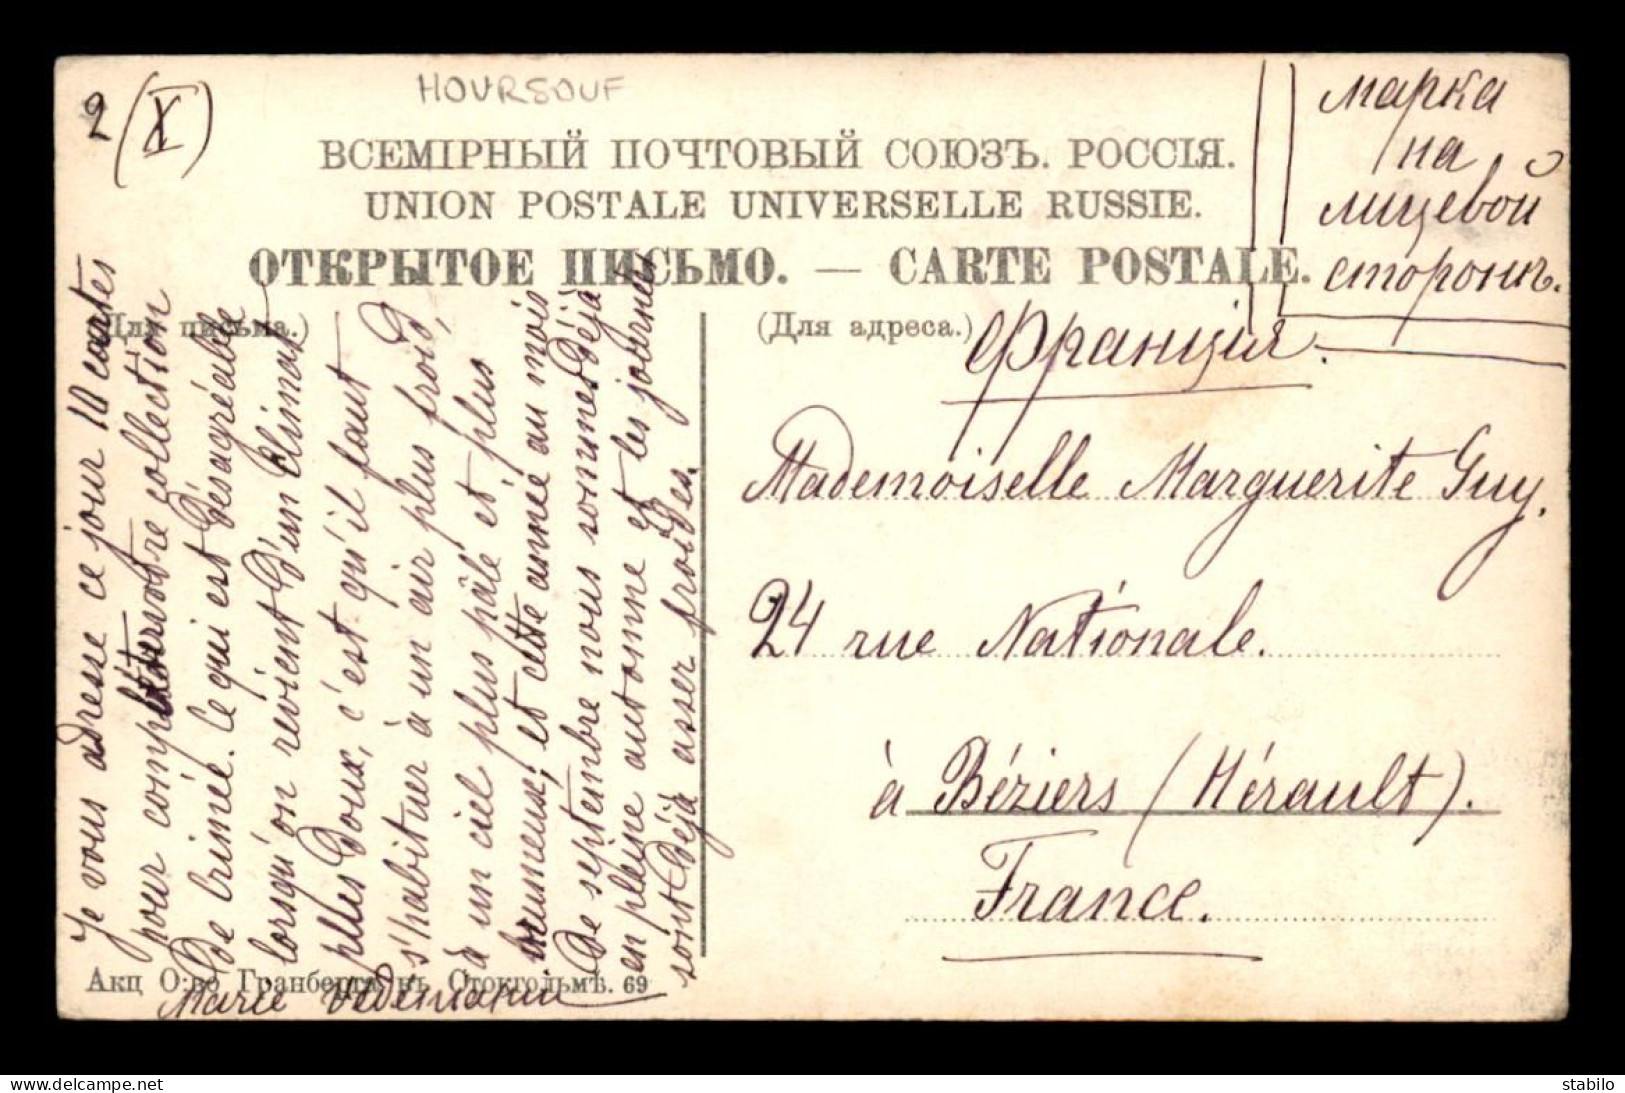 2 (X)
HOURSOUF
ВСЕМІРНЫЙ ПОЧТОВЫЙ СОЮЗЪ. РОССІЯ.
UNION POSTALE UNIVERSELLE RUSSIE.
ОТКРЫТОЕ ПИСЬМО. — CARTE POSTALE.
марка
на
лицевой
сторонѣ.
(Для письма.)
(Для адреса.)
Франція.
Mademoiselle Marguerite Guy.
24 rue Nationale.
à Béziers (Hérault).
France.
Je vous adresse ce jour 10 cartes
pour compléter votre collection
de Crimée. Ce qui est désagréable
lorsqu'on revient d'un climat
plus doux, c'est qu'il faut
s'habituer à un air plus froid,
à un ciel plus pâle et plus
brumeux; et cette année au mois
de septembre nous sommes déjà
en pleine automne et les journées
sont déjà assez froides.
Marie
Акц О:во Гранбергъ въ Стокгольмѣ. 69
delcampe.net
stabilo